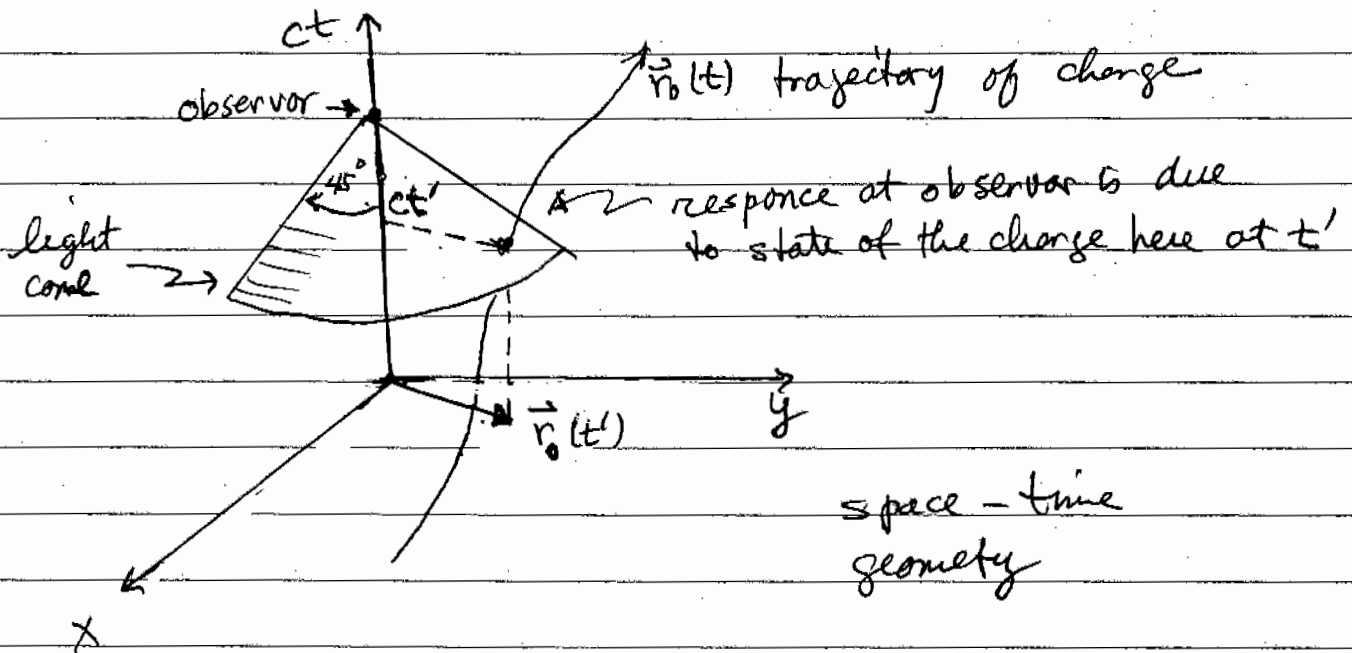 ct
r⃗₀(t) trajectory of charge
observor →
45°
ct'
responce at observor is due
to state of the charge here at t'
light
cone
y
r⃗₀(t')
space - time
geomety
x